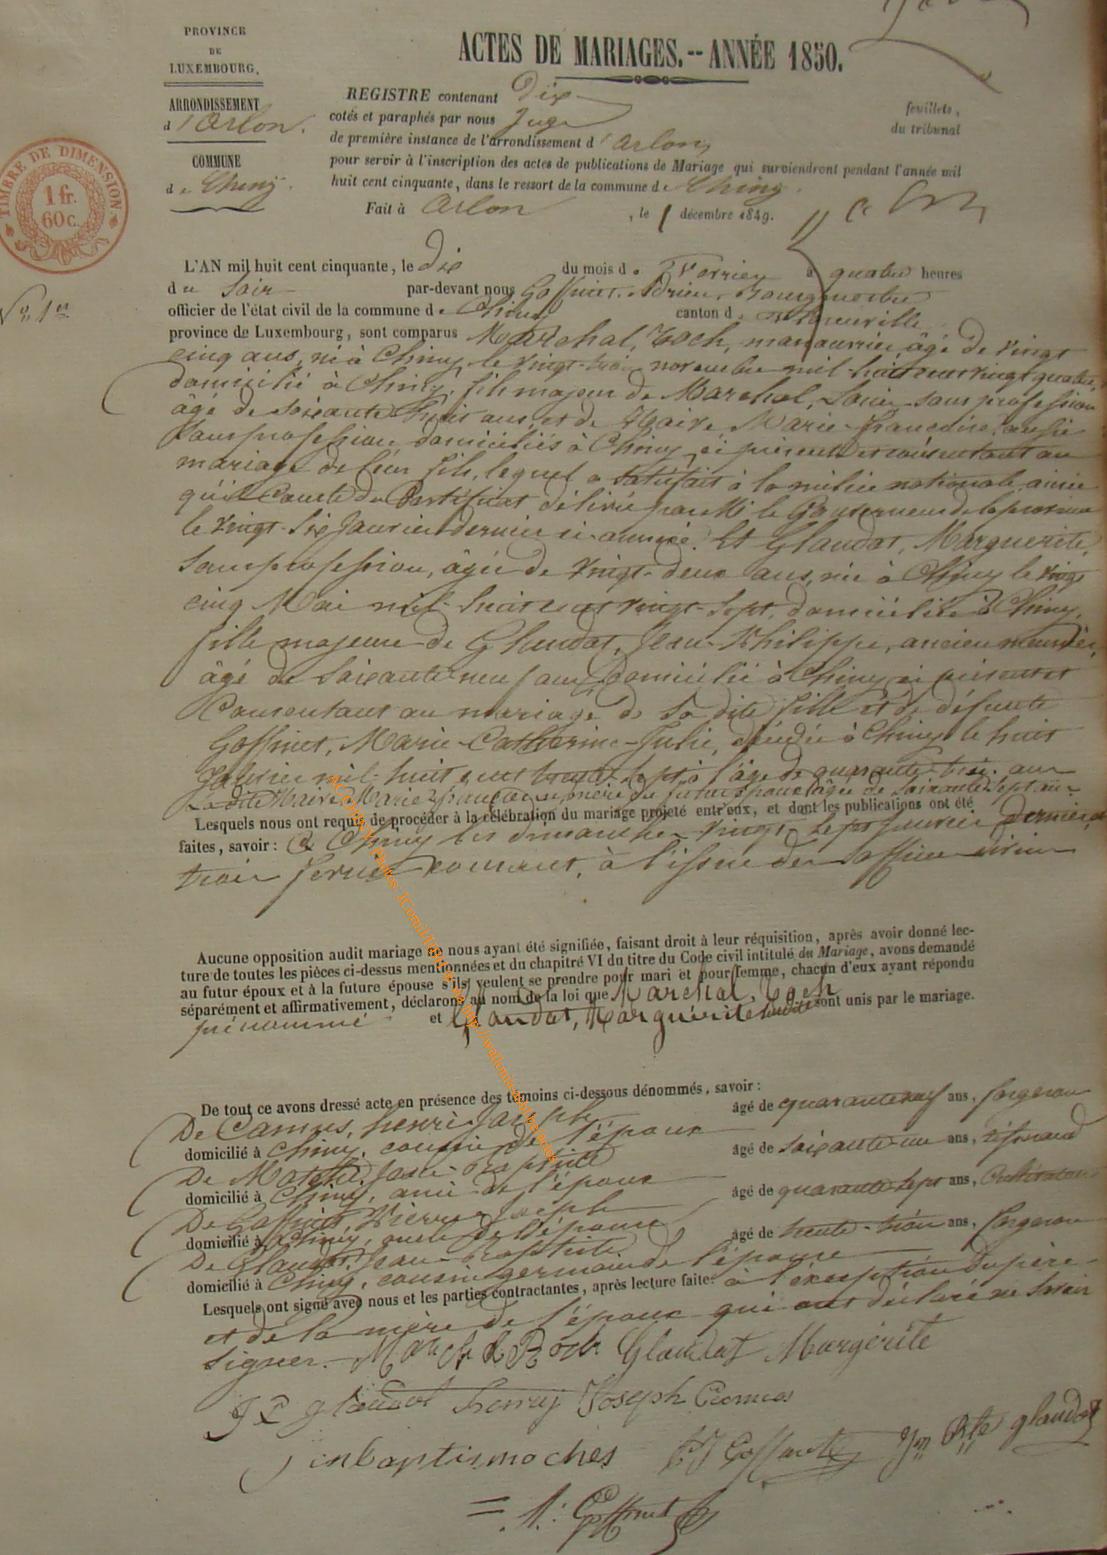 PROVINCE
DE
LUXEMBOURG.
ARRONDISSEMENT
d'Arlon.
COMMUNE
de Chiny.
TIMBRE DE DIMENSION
1 fr.
60 c.
ACTES DE MARIAGES.-- ANNÉE 1850.
REGISTRE contenant Dix feuillets,
cotés et paraphés par nous Juge du tribunal
de première instance de l'arrondissement d'Arlon
pour servir à l'inscription des actes de publications de Mariage qui surviendront pendant l'année mil
huit cent cinquante, dans le ressort de la commune de Chiny.
Fait à Arlon, le 1 décembre 1849.
N° 1er
L'AN mil huit cent cinquante, le dix du mois de Février à quatre heures
du soir par-devant nous Goffinet, Adrien, Bourgmestre
officier de l'état civil de la commune de Chiny canton de
province de Luxembourg, sont comparus Maréchal, Roch, manouvrier, âgé de vingt
cinq ans, né à Chiny le vingt-trois novembre mil-huit cent vingt quatre,
domicilié à Chiny, fils majeur de Maréchal, sans profession
âgé de soixante huit ans, et de Maire Marie-Françoise, aussi
sans profession domiciliés à Chiny, ci présents et consentant au
mariage de leur fils, lequel a satisfait à la milice nationale ainsi
qu'il conste du Certificat délivré par Mr le Gouverneur de la province
le vingt-six Janvier dernier ci-annexé. Et Glaudot, Marguerite,
sans profession, âgée de vingt-deux ans, née à Chiny le vingt
cinq Mai mil-huit cent vingt-sept, domiciliée à Chiny,
fille majeure de Glaudot, Jean-Philippe, ancien meunier,
âgé de soixante neuf ans, domicilié à Chiny, ci présent et
consentant au mariage de sa dite fille et de défunte
Goffinet, Marie-Catherine-Julie, décédée à Chiny le huit
mil-huit cent trente sept à l'âge de quarante-trois ans
La dite Maire Marie Françoise, mère du futur époux âgée de soixante sept ans.
Lesquels nous ont requis de procéder à la célébration du mariage projeté entr'eux, et dont les publications ont été
faites, savoir : à Chiny les dimanches vingt sept Janvier dernier, et
trois Février courant, à l'issue de l'office divin
Aucune opposition audit mariage ne nous ayant été signifiée, faisant droit à leur réquisition, après avoir donné lec-
ture de toutes les pièces ci-dessus mentionnées et du chapitre VI du titre du Code civil intitulé du Mariage, avons demandé
au futur époux et à la future épouse s'ils veulent se prendre pour mari et pour femme, chacun d'eux ayant répondu
séparément et affirmativement, déclarons au nom de la loi que Maréchal, Roch
prénommé et Glaudot, Marguerite sont unis par le mariage.
De tout ce avons dressé acte en présence des témoins ci-dessous dénommés, savoir :
De Camus, Henri-Joseph âgé de quarante neuf ans, forgeron
domicilié à Chiny, cousin de l'époux
De Jean-Baptiste âgé de soixante-un ans,
domicilié à Chiny, ami de l'époux
De Goffinet, Pierre-Joseph âgé de quarante-sept ans, Cultivateur
domicilié à Chiny, oncle de l'épouse
De Glaudot, Jean-Baptiste âgé de trente-trois ans, forgeron
domicilié à Chiny, cousin germain de l'épouse
Lesquels ont signé avec nous et les parties contractantes, après lecture faite: à l'exception du père
et de la mère de l'époux qui ont déclaré ne savoir
signer.- Roch Glaudat Margérite
J P glaudot henry Joseph Camus
P J Goffinet Jn Bte glaudot
A. Goffinet